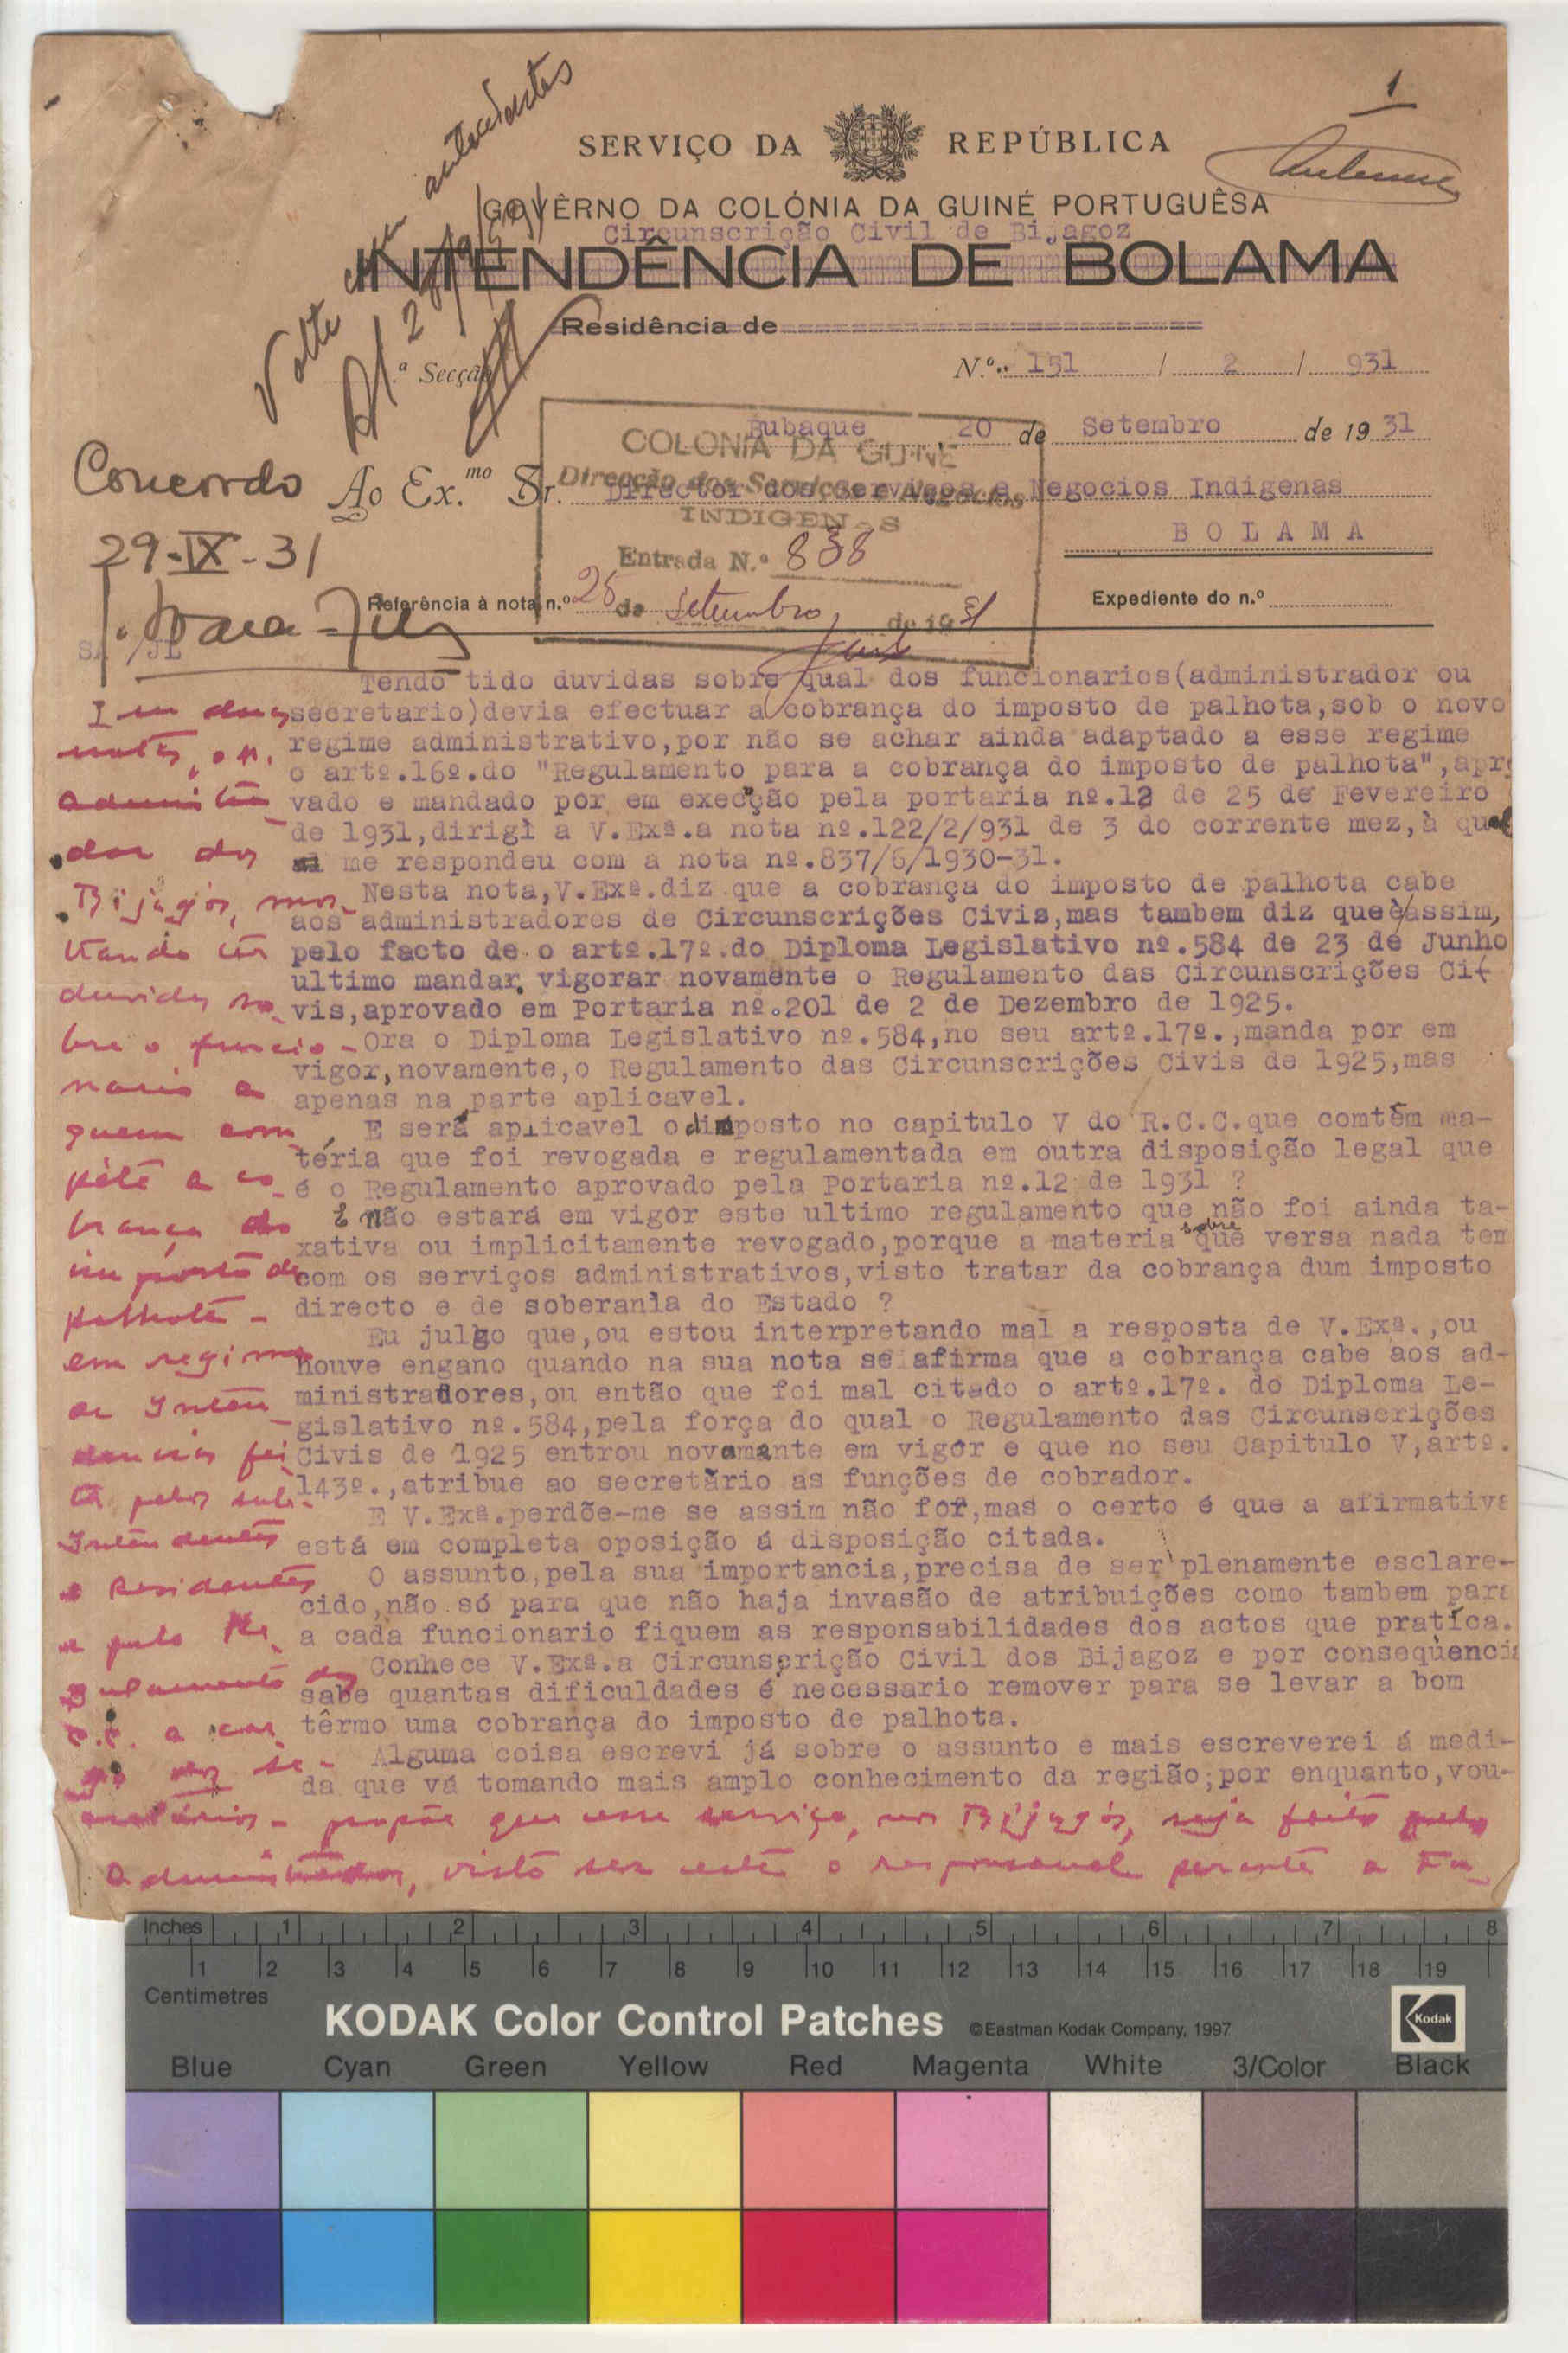 1
Volte com antecedentes
SERVIÇO DA REPÚBLICA
GOVÊRNO DA COLÓNIA DA GUINÉ PORTUGUÊSA
Circunscrição Civil de Bijagoz
INTENDÊNCIA DE BOLAMA
Residência de
.ª Secção
N.º 151 / 2 / 931
Bubaque 20 de Setembro de 19 31
Concordo
29-IX-31
Ao Ex.mo Sr. Director dos Serviços e Negocios Indigenas
BOLAMA
COLONIA DA GUINÉ
Direcção dos Serviços e Negocios
INDIGENAS
Entrada N.º 838
25 de Setembro de 1931
Referência à nota n.º
Expediente do n.º
SA/JL
Tendo tido duvidas sobre qual dos funcionarios(administrador ou
secretario)devia efectuar a cobrança do imposto de palhota,sob o novo
regime administrativo,por não se achar ainda adaptado a esse regime
o artº.16º.do "Regulamento para a cobrança do imposto de palhota",apr
vado e mandado por em execção pela portaria nº.12 de 25 de Fevereiro
de 1931,dirigi a V.Exª.a nota nº.122/2/931 de 3 do corrente mez,à qual
me respondeu com a nota nº.837/6/1930-31.
Nesta nota,V.Exª.diz que a cobrança do imposto de palhota cabe
aos administradores de Circunscrições Civis,mas tambem diz que è assim,
pelo facto de o artº.17º.do Diploma Legislativo nº.584 de 23 de Junho
ultimo mandar vigorar novamente o Regulamento das Circunscrições Ci-
vis,aprovado em Portaria nº.201 de 2 de Dezembro de 1925.
Ora o Diploma Legislativo nº.584,no seu artº.17º.,manda por em
vigor,novamente,o Regulamento das Circunscrições Civis de 1925,mas
apenas na parte aplicavel.
E será aplicavel o disposto no capitulo V do R.C.C.que comtêm ma-
téria que foi revogada e regulamentada em outra disposição legal que
é o Regulamento aprovado pela Portaria nº.12 de 1931 ?
E não estará em vigor este ultimo regulamento que não foi ainda ta-
xativa ou implicitamente revogado,porque a materia sobre que versa nada tem
com os serviços administrativos,visto tratar da cobrança dum imposto
directo e de soberania do Estado ?
Eu julgo que,ou estou interpretando mal a resposta de V.Exª.,ou
houve engano quando na sua nota se afirma que a cobrança cabe aos ad-
ministradores,ou então que foi mal citado o artº.17º. do Diploma Le-
gislativo nº.584,pela força do qual o Regulamento das Circunscrições
Civis de 1925 entrou novamante em vigor e que no seu Capitulo V,artº.
143º.,atribue ao secretário as funções de cobrador.
E V.Exª.perdõe-me se assim não for,mas o certo é que a afirmativa
está em completa oposição á disposição citada.
O assunto,pela sua importancia,precisa de ser plenamente esclare-
cido,não só para que não haja invasão de atribuições como tambem para
a cada funcionario fiquem as responsabilidades dos actos que pratica.
Conhece V.Exª.a Circunscrição Civil dos Bijagoz e por conseqùencia
sabe quantas dificuldades é necessario remover para se levar a bom
têrmo uma cobrança do imposto de palhota.
Alguma coisa escrevi já sobre o assunto e mais escreverei á medi-
da que vá tomando mais amplo conhecimento da região;por enquanto,vou-
notas, o sr.
Adminístra-
dor dos
Bijagós, mos-
trando ter
duvidas so-
bre o funcio-
nario a
quem com-
pete a co-
brança do
imposto de
palhota -
em regimen
de Inten-
dencias feita
pelos sub-
Intendentes
e Residentes
e pelo Re-
gulamento das
C.C. a car-
go dos se-
cretários - propõe que esse serviço, nos Bijagós, seja feito pelo
Administrador, visto ser este o responsavel perante a Fa-
Inches 1 2 3 4 5 6 7 8
1 2 3 4 5 6 7 8 9 10 11 12 13 14 15 16 17 18 19
Centimetres
KODAK Color Control Patches ©Eastman Kodak Company, 1997 Kodak
Blue Cyan Green Yellow Red Magenta White 3/Color Black